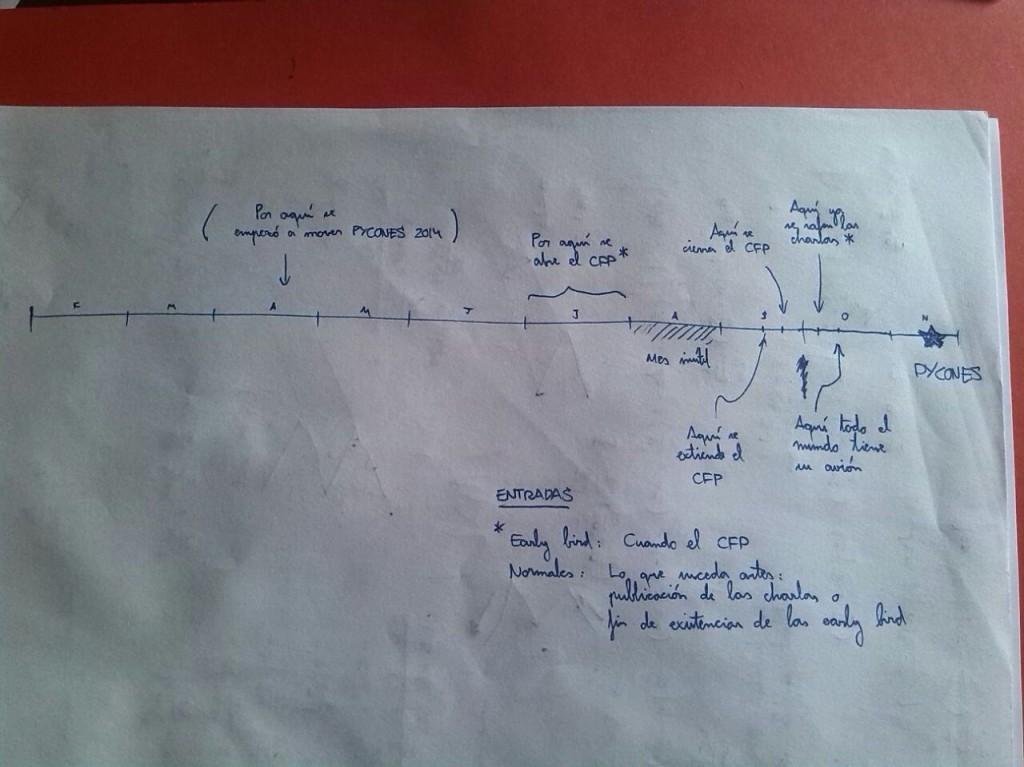 ( Por aquí se
empezó a mover PYCONES 2014 )
Por aquí se
abre el CFP *
Aquí se
cierra el CFP
Aquí ya
se saben las
charlas *
F M A M J J A S O N
Mes inútil
PYCONES
Aquí se
extiende el
CFP
Aquí todo el
mundo tiene
su avión
ENTRADAS
* Early bird: Cuando el CFP
Normales: Lo que suceda antes:
publicación de las charlas o
fin de existencias de las early bird